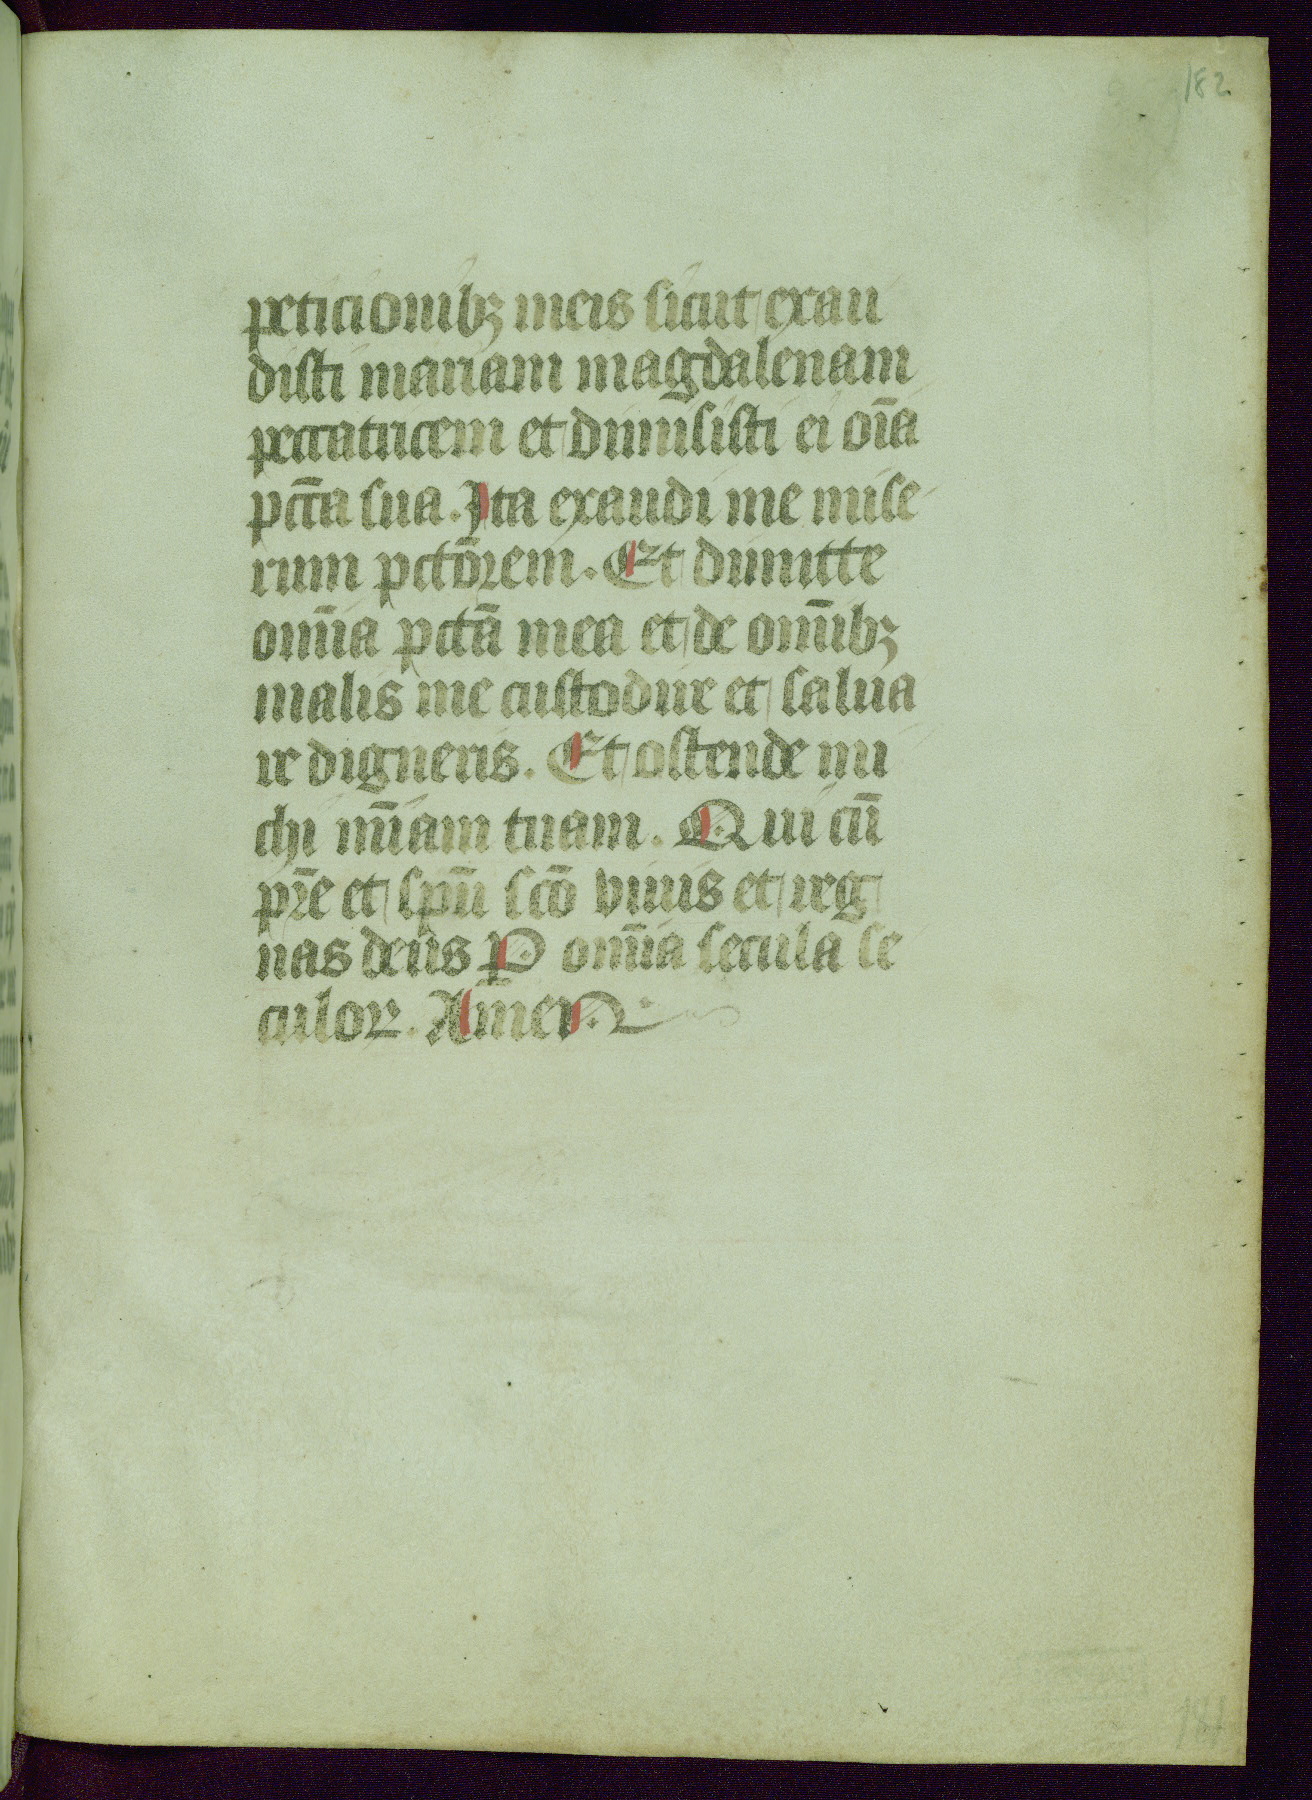 182
peticionibꝫ meis sicut exau
disti mariam magdalenam
peccatricem et dimisisti ei oīa
pctā sua. Ita exaudi me mise
rum pctōrem. Et dimitte
omīa pctā mea et de omībꝫ
malis me custodire et salua
re digneris. Et ostende mi
chi mīam tuam. Qui cū
pr̄e et spū scō viuis et reg
nas deus P omīa secula se
culoꝝ. Amen.
181